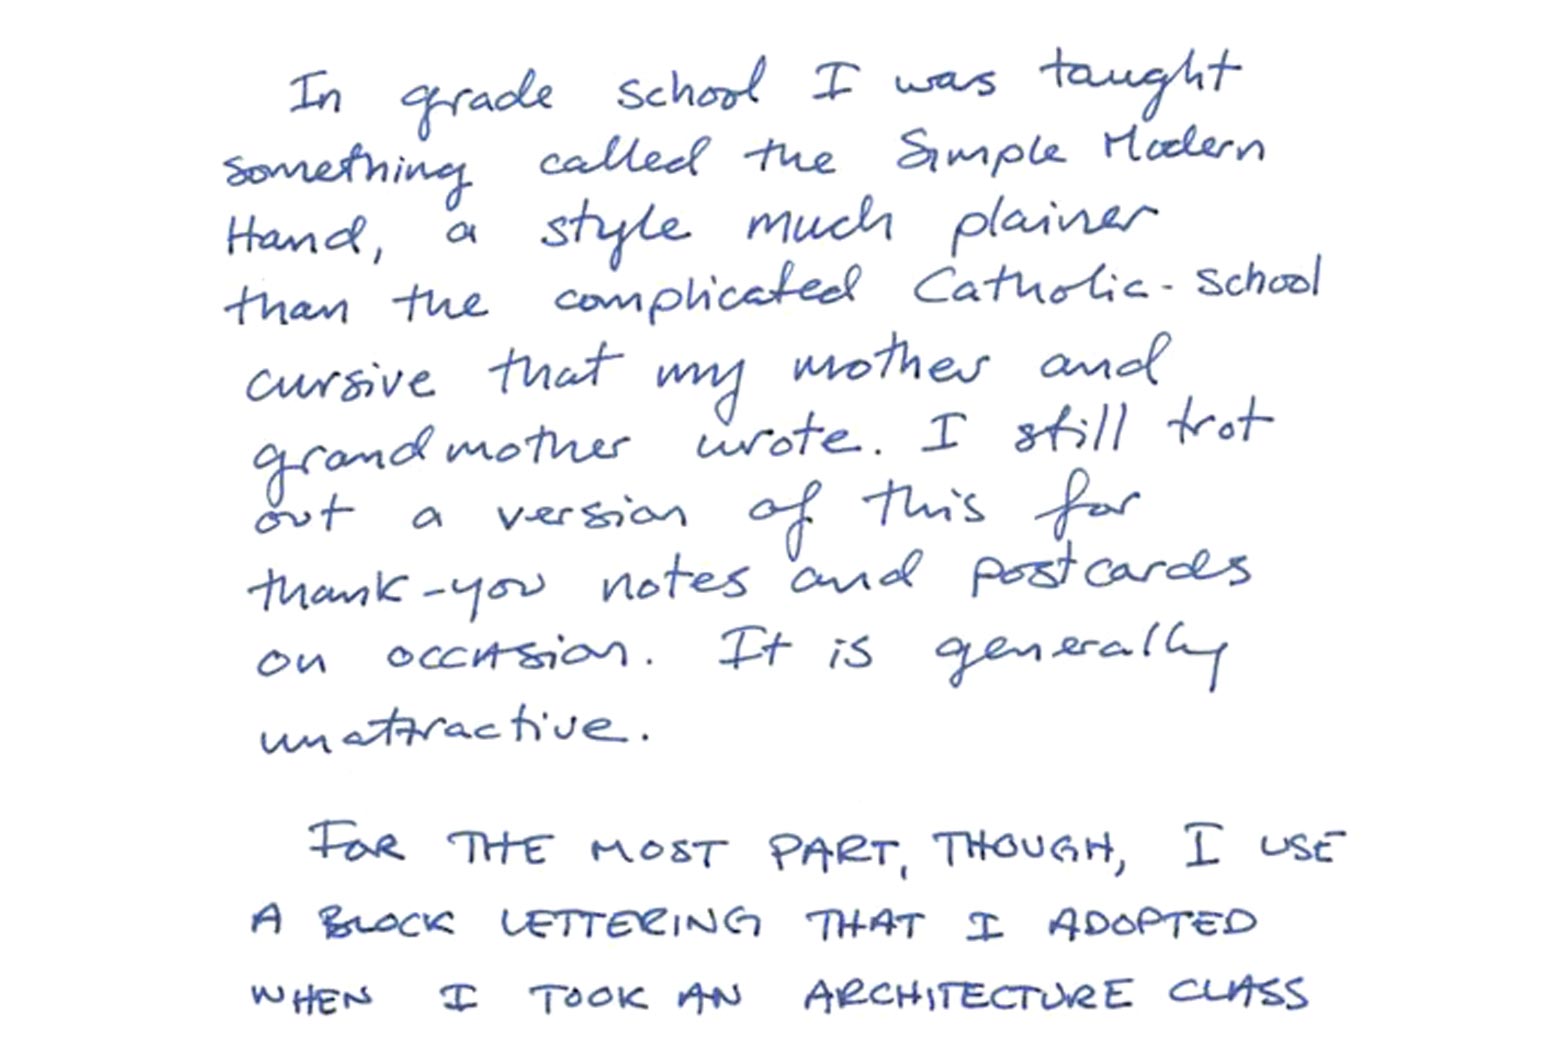 In grade school I was taught
something called the Simple Modern
Hand, a style much plainer
than the complicated Catholic-school
cursive that my mother and
grandmother wrote. I still trot
out a version of this for
thank-you notes and postcards
on occasion. It is generally
unattractive.
FOR THE MOST PART, THOUGH, I USE
A BLOCK LETTERING THAT I ADOPTED
WHEN I TOOK AN ARCHITECTURE CLASS